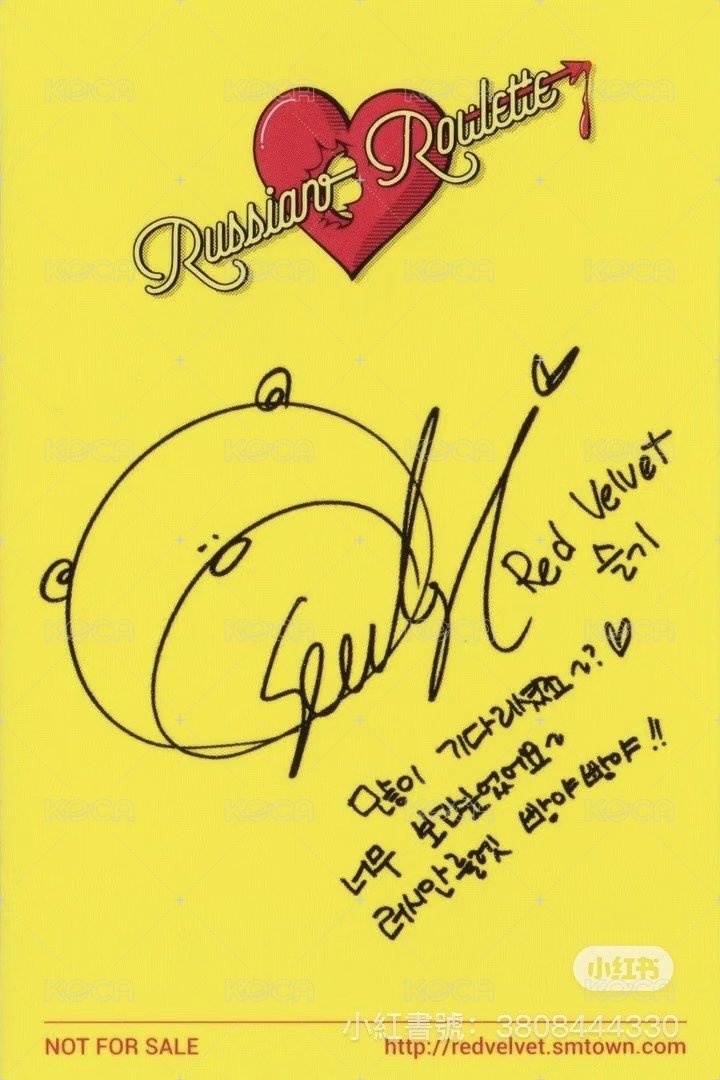 Russian Roulette
Seulgi
Red Velvet
슬기
많이 기다리셨죠~? ♡
너무 보고싶었어요~
러시안룰렛 빵야빵야!!
小红书
小紅書號：3808444330
NOT FOR SALE
http://redvelvet.smtown.com
KOCA